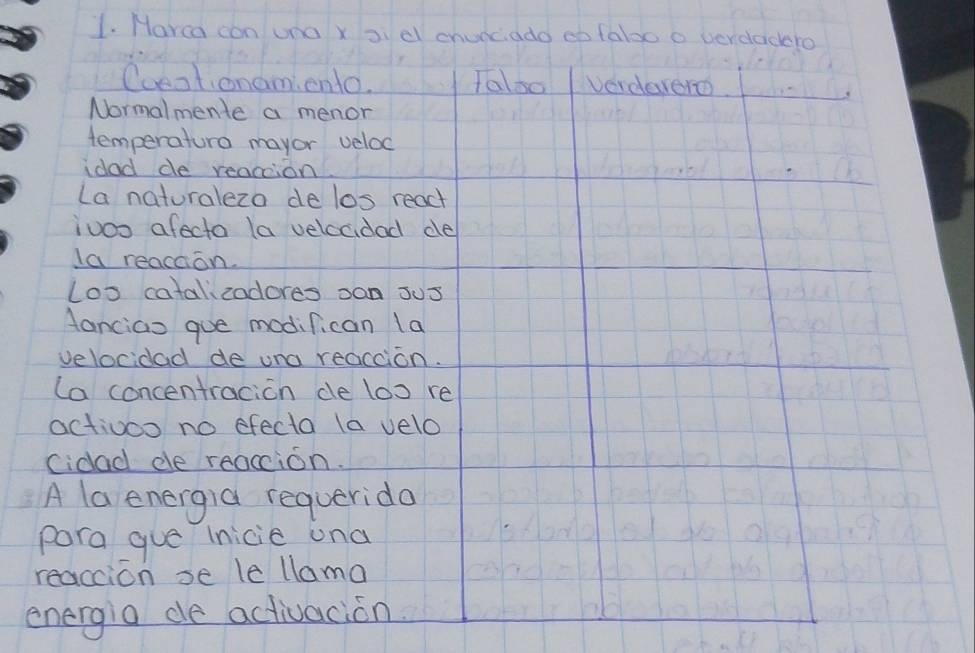 1. Marca con una x si el enunciado es falso o verdadero
Cuestionamiento. Falso Verdarero.
Normalmente a menor
temperatura mayor veloc
idad de reacción.
La naturaleza de los react
ivos afecta la velocidad de
la reacción.
Los catalizadores son sus
tancias que modifican la
velocidad de una reacción.
La concentración de los re
activos no efecta la velo
cidad de reacción.
A la energia requerida
para que inicie una
reacción se le llama
energia de activación.